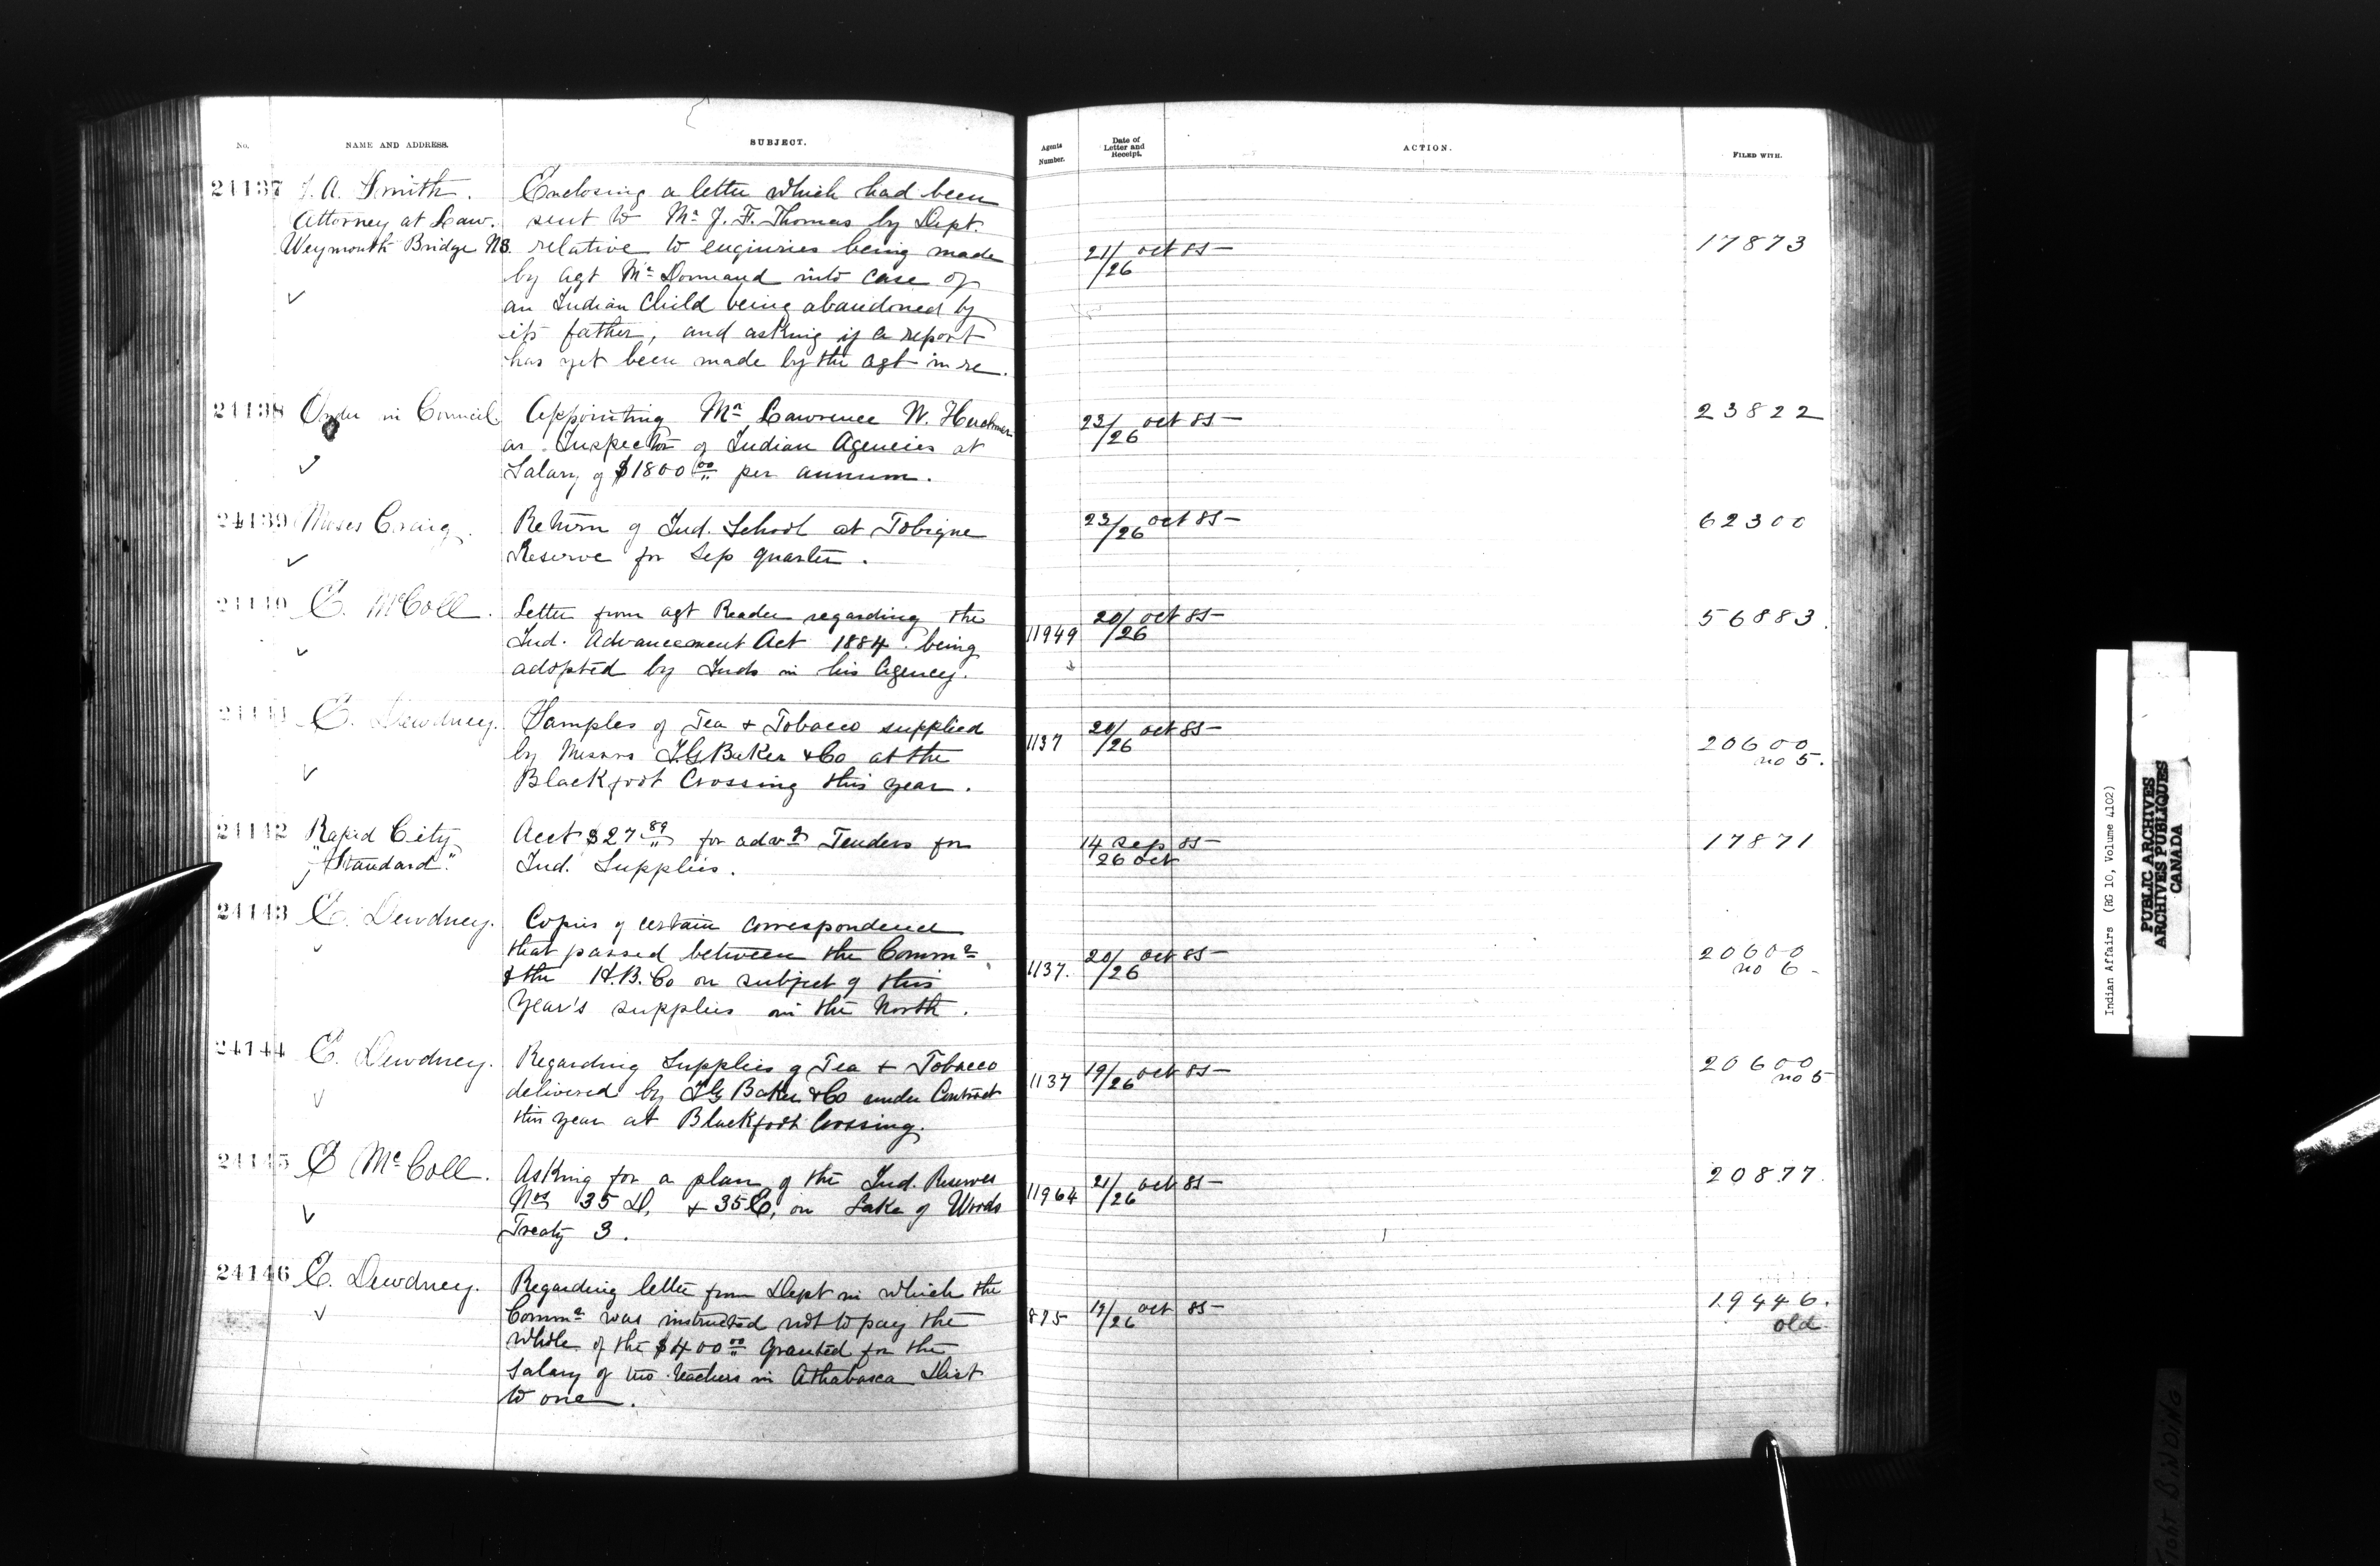 No. NAME AND ADDRESS. SUBJECT. Agents Number. Date of Letter and Receipt. ACTION. FILED WITH.
24137 J. A. Smith. Enclosing a letter which had been
Attorney at Law. sent to Mr J. F. Thomas by Dept.
Weymouth Bridge NS. relative to enquiries being made 21/26 oct 85 17873
by agt Mc Dormand into case of
an Indian Child being abandoned by
its father, and asking if a report
has yet been made by the agt in re.
24138 Order in Council. Appointing Mr Lawrence W. Herchmer 23/26 oct 85 23822
as Inspector of Indian Agencies at
Salary of $1800 00 per annum.
24139 Moses Craig. Return of Ind. School at Tobique 23/26 oct 85 62300
Reserve for Sep quarter.
24140 E. McColl. Letter from agt Reader regarding the 20/26 oct 85 56883.
Ind. Advancement Act 1884 being 11949
adopted by Inds in his Agency.
24141 E. Dewdney. Samples of Tea & Tobacco supplied 20/26 oct 85
by Messrs I.G. Baker & Co at the 1137 20600
Blackfoot Crossing this year. no 5.
24142 Rapid City Acct $27 89 for advg Tenders for 14 Sep 85 17871
"Standard". Ind. Supplies. 26 Oct
24143 E. Dewdney. Copies of certain correspondence
that passed between the Commr 20/26 oct 85 20600
& the H.B. Co on subject of this 1137. no 6
Year's supplies in the North.
24144 E. Dewdney. Regarding Supplies of Tea & Tobacco 19/26 oct 85 20600
delivered by I.G. Baker & Co under Contract 1137 no 5
this year at Blackfoot Crossing.
24145 E McColl. Asking for a plan of the Ind. Reserves 21/26 oct 85 20877.
Nos 35 D, & 35 E, on Lake of Woods 11964
Treaty 3.
24146 E. Dewdney. Regarding letter from Dept in which the
Commr was instructed not to pay the 895 19/26 oct 85 19446.
whole of the $400 00 granted for the old
Salary of two teachers in Athabasca Dist
to one.
Indian Affairs (RG 10, Volume 4102)
PUBLIC ARCHIVES
ARCHIVES PUBLIQUES
CANADA
Tight BINDING